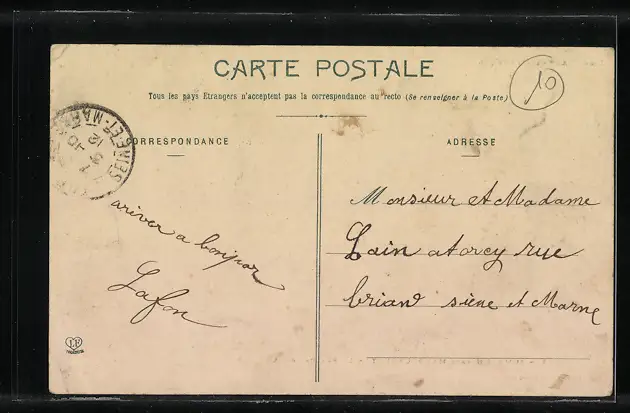 CARTE POSTALE
Tous les pays Etrangers n'acceptent pas la correspondance au recto (Se renseigner à la Poste)
10
CORRESPONDANCE
ADRESSE
SEINE-ET-MAR
12
ariver a bonjour
Lafon
Monsieur et Madame
Lain a torcy rue
briand siene et Marne